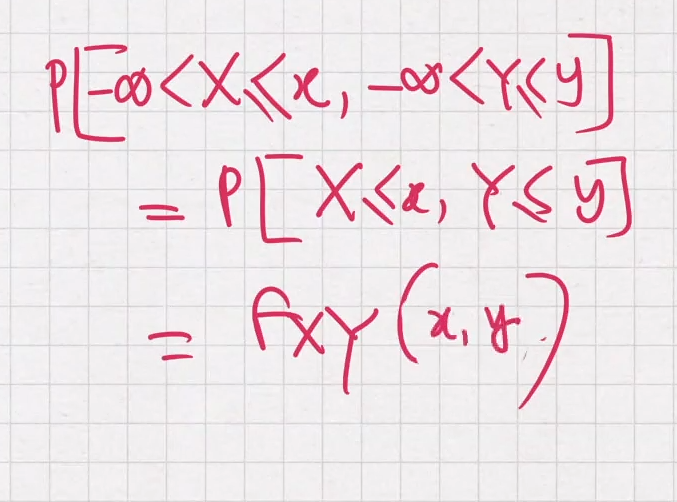 P[-∞<X≤x, -∞<Y≤y]
= P[X≤x, Y≤y]
= fXY(x,y)